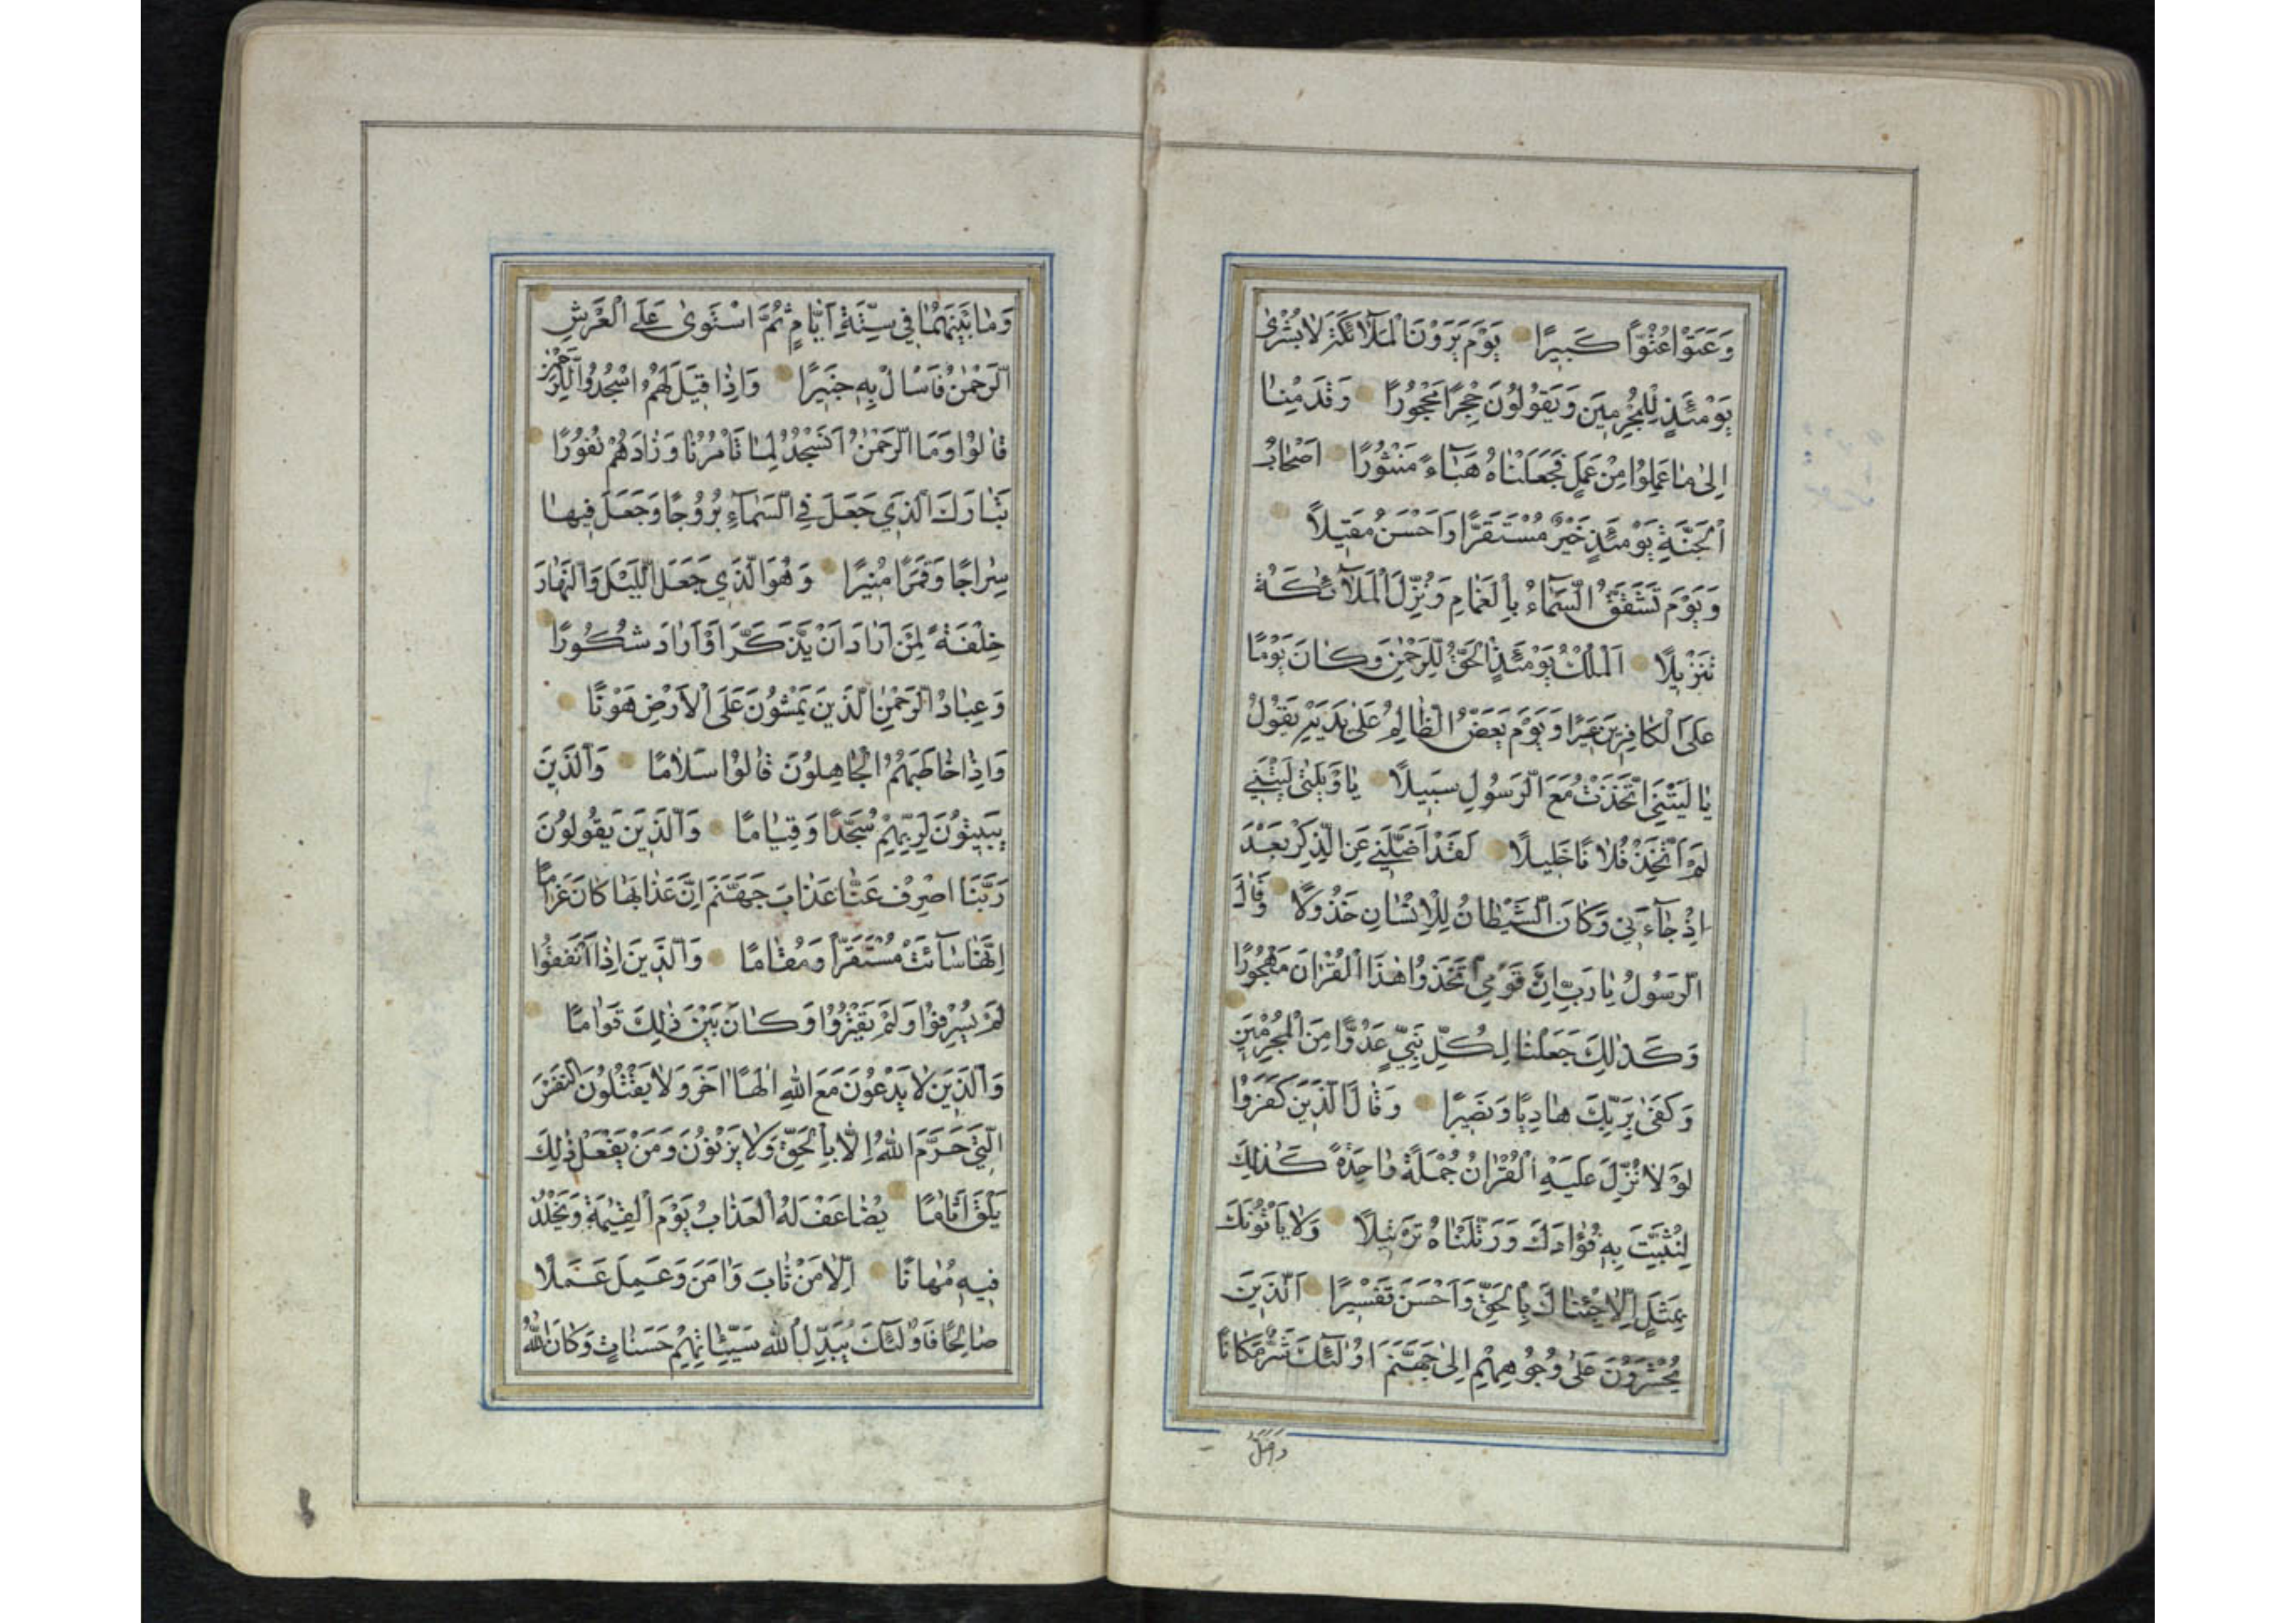 وَعَتَوْا عُتُوًّا كَبِيرًا يَوْمَ يَرَوْنَ الْمَلَآئِكَةَ لَا بُشْرٰى
يَوْمَئِذٍ لِلْمُجْرِمِينَ وَيَقُولُونَ حِجْرًا مَحْجُورًا وَقَدِمْنَا
اِلٰى مَا عَمِلُوا مِنْ عَمَلٍ فَجَعَلْنَاهُ هَبَآءً مَنْثُورًا اَصْحَابُ
الْجَنَّةِ يَوْمَئِذٍ خَيْرٌ مُسْتَقَرًّا وَاَحْسَنُ مَقِيلًا
وَيَوْمَ تَشَقَّقُ السَّمَآءُ بِالْغَمَامِ وَنُزِّلَ الْمَلَآئِكَةُ
تَنْزِيلًا اَلْمُلْكُ يَوْمَئِذٍ الْحَقُّ لِلرَّحْمٰنِ وَكَانَ يَوْمًا
عَلَى الْكَافِرِينَ عَسِيرًا وَيَوْمَ يَعَضُّ الظَّالِمُ عَلٰى يَدَيْهِ يَقُولُ
يَا لَيْتَنِي اتَّخَذْتُ مَعَ الرَّسُولِ سَبِيلًا يَا وَيْلَتٰى لَيْتَنِي
لَمْ اَتَّخِذْ فُلَانًا خَلِيلًا لَقَدْ اَضَلَّنِي عَنِ الذِّكْرِ بَعْدَ
اِذْ جَآءَنِي وَكَانَ الشَّيْطَانُ لِلْاِنْسَانِ خَذُولًا وَقَالَ
الرَّسُولُ يَا رَبِّ اِنَّ قَوْمِي اتَّخَذُوا هٰذَا الْقُرْاٰنَ مَهْجُورًا
وَكَذٰلِكَ جَعَلْنَا لِكُلِّ نَبِيٍّ عَدُوًّا مِنَ الْمُجْرِمِينَ
وَكَفٰى بِرَبِّكَ هَادِيًا وَنَصِيرًا وَقَالَ الَّذِينَ كَفَرُوا
لَوْلَا نُزِّلَ عَلَيْهِ الْقُرْاٰنُ جُمْلَةً وَاحِدَةً كَذٰلِكَ
لِنُثَبِّتَ بِهِ فُؤَادَكَ وَرَتَّلْنَاهُ تَرْتِيلًا وَلَا يَاْتُونَكَ
بِمَثَلٍ اِلَّا جِئْنَاكَ بِالْحَقِّ وَاَحْسَنَ تَفْسِيرًا اَلَّذِينَ
يُحْشَرُونَ عَلٰى وُجُوهِهِمْ اِلٰى جَهَنَّمَ اُولٰٓئِكَ شَرٌّ مَكَانًا
وَاَضَلُّ
وَمَا بَيْنَهُمَا فِي سِتَّةِ اَيَّامٍ ثُمَّ اسْتَوٰى عَلَى الْعَرْشِ
الرَّحْمٰنُ فَاسْاَلْ بِهِ خَبِيرًا وَاِذَا قِيلَ لَهُمُ اسْجُدُوا لِلرَّحْمٰنِ
قَالُوا وَمَا الرَّحْمٰنُ اَنَسْجُدُ لِمَا تَاْمُرُنَا وَزَادَهُمْ نُفُورًا
تَبَارَكَ الَّذِي جَعَلَ فِي السَّمَآءِ بُرُوجًا وَجَعَلَ فِيهَا
سِرَاجًا وَقَمَرًا مُنِيرًا وَهُوَ الَّذِي جَعَلَ اللَّيْلَ وَالنَّهَارَ
خِلْفَةً لِمَنْ اَرَادَ اَنْ يَذَّكَّرَ اَوْ اَرَادَ شُكُورًا
وَعِبَادُ الرَّحْمٰنِ الَّذِينَ يَمْشُونَ عَلَى الْاَرْضِ هَوْنًا
وَاِذَا خَاطَبَهُمُ الْجَاهِلُونَ قَالُوا سَلَامًا وَالَّذِينَ
يَبِيتُونَ لِرَبِّهِمْ سُجَّدًا وَقِيَامًا وَالَّذِينَ يَقُولُونَ
رَبَّنَا اصْرِفْ عَنَّا عَذَابَ جَهَنَّمَ اِنَّ عَذَابَهَا كَانَ غَرَامًا
اِنَّهَا سَآءَتْ مُسْتَقَرًّا وَمُقَامًا وَالَّذِينَ اِذَا اَنْفَقُوا
لَمْ يُسْرِفُوا وَلَمْ يَقْتُرُوا وَكَانَ بَيْنَ ذٰلِكَ قَوَامًا
وَالَّذِينَ لَا يَدْعُونَ مَعَ اللّٰهِ اِلٰهًا اٰخَرَ وَلَا يَقْتُلُونَ النَّفْسَ
الَّتِي حَرَّمَ اللّٰهُ اِلَّا بِالْحَقِّ وَلَا يَزْنُونَ وَمَنْ يَفْعَلْ ذٰلِكَ
يَلْقَ اَثَامًا يُضَاعَفْ لَهُ الْعَذَابُ يَوْمَ الْقِيٰمَةِ وَيَخْلُدْ
فِيهِ مُهَانًا اِلَّا مَنْ تَابَ وَاٰمَنَ وَعَمِلَ عَمَلًا
صَالِحًا فَاُولٰٓئِكَ يُبَدِّلُ اللّٰهُ سَيِّئَاتِهِمْ حَسَنَاتٍ وَكَانَ اللّٰهُ